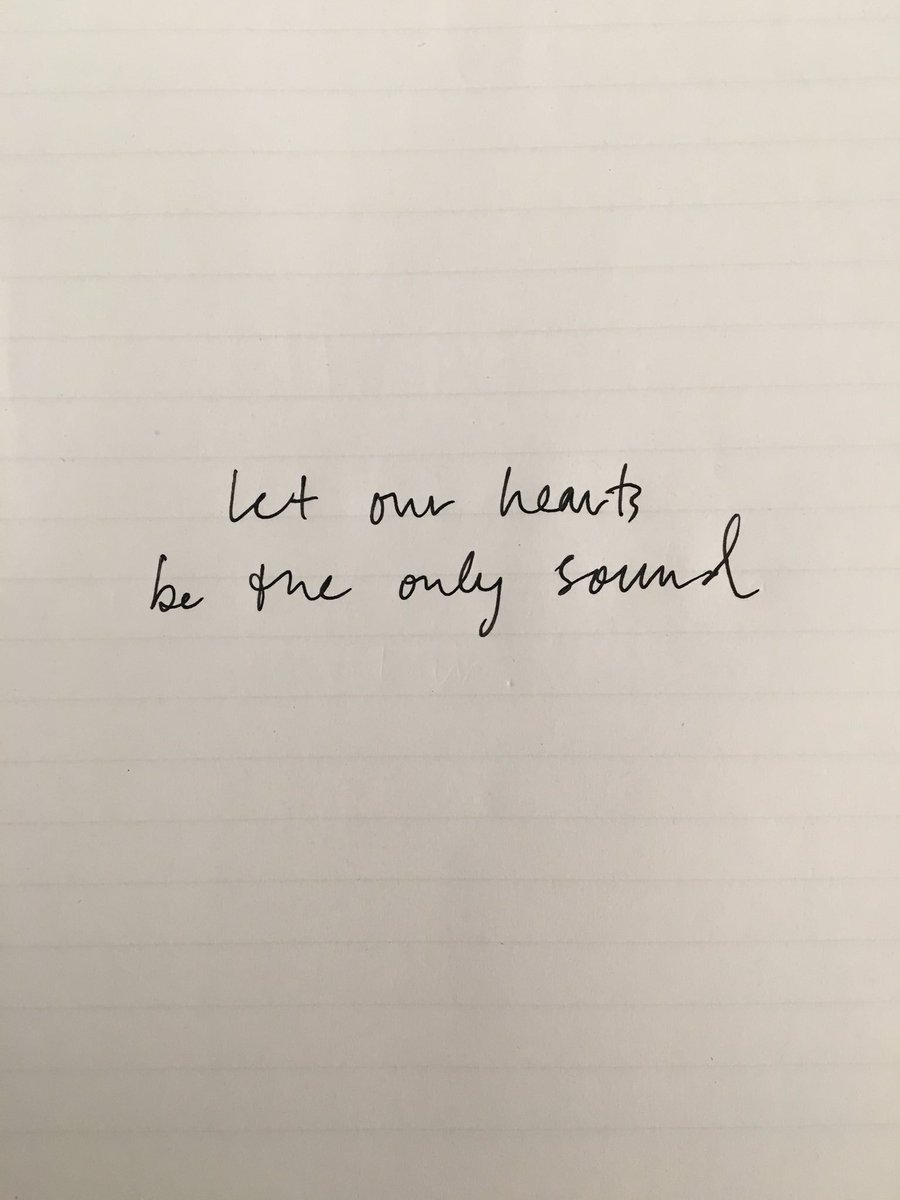 let our hearts
be the only sound